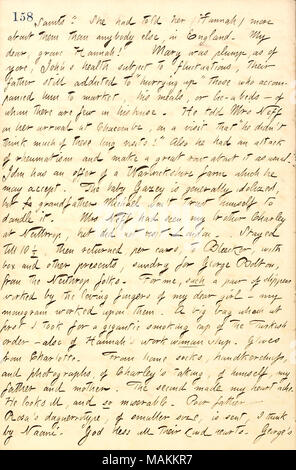 158
Saints? She had told her (Hannah) more
about them than anybody else, in England. My
dear, good Hannah! Mary was plump as of
yore, John's health subject to "fluctuations," their
father still addicted to "hurrying up" those who accom-
panied him to market, his meals, or lie-a-beds — of
whom there are few in his house. He told Mrs Neff
on her arrival at Chacombe, on a visit that he didn't
think much of these long visits! Also he had an attack
of rheumatism and made a great row about it as usual.
John has an offer of a Warwickshire farm which he
may accept. The baby Gazey is generally adored,
but its grandfather Michael won't trust himself to
dandle it. Mrs Neff had seen my brother Charley
at Neithrop, but did not visit London. Stayed
till 10 1/2, then returned per cars, to Bleecker, with
box and other presents, sundry for George Bolton,
from the Neithrop folks. For me, such a pair of slippers
worked by the loving fingers of my dear girl — my
monogram worked upon them. A big bag whom at
first I took for a gigantic smoking cap of the Turkish
order — also of Hannah's work
from Charlotte. From home socks, handkerchiefs,
and photographs, of Charley's taking, of himself, my
father and mother. The second made my heart ache.
He looks ill, and so miserable. Poor father —
Rosa's daguerreotype, of smaller size, is sent, I think
by Naomi. God bless all their kind hearts. George's
a alamy
Image ID: MAKKR7
www.alamy.com